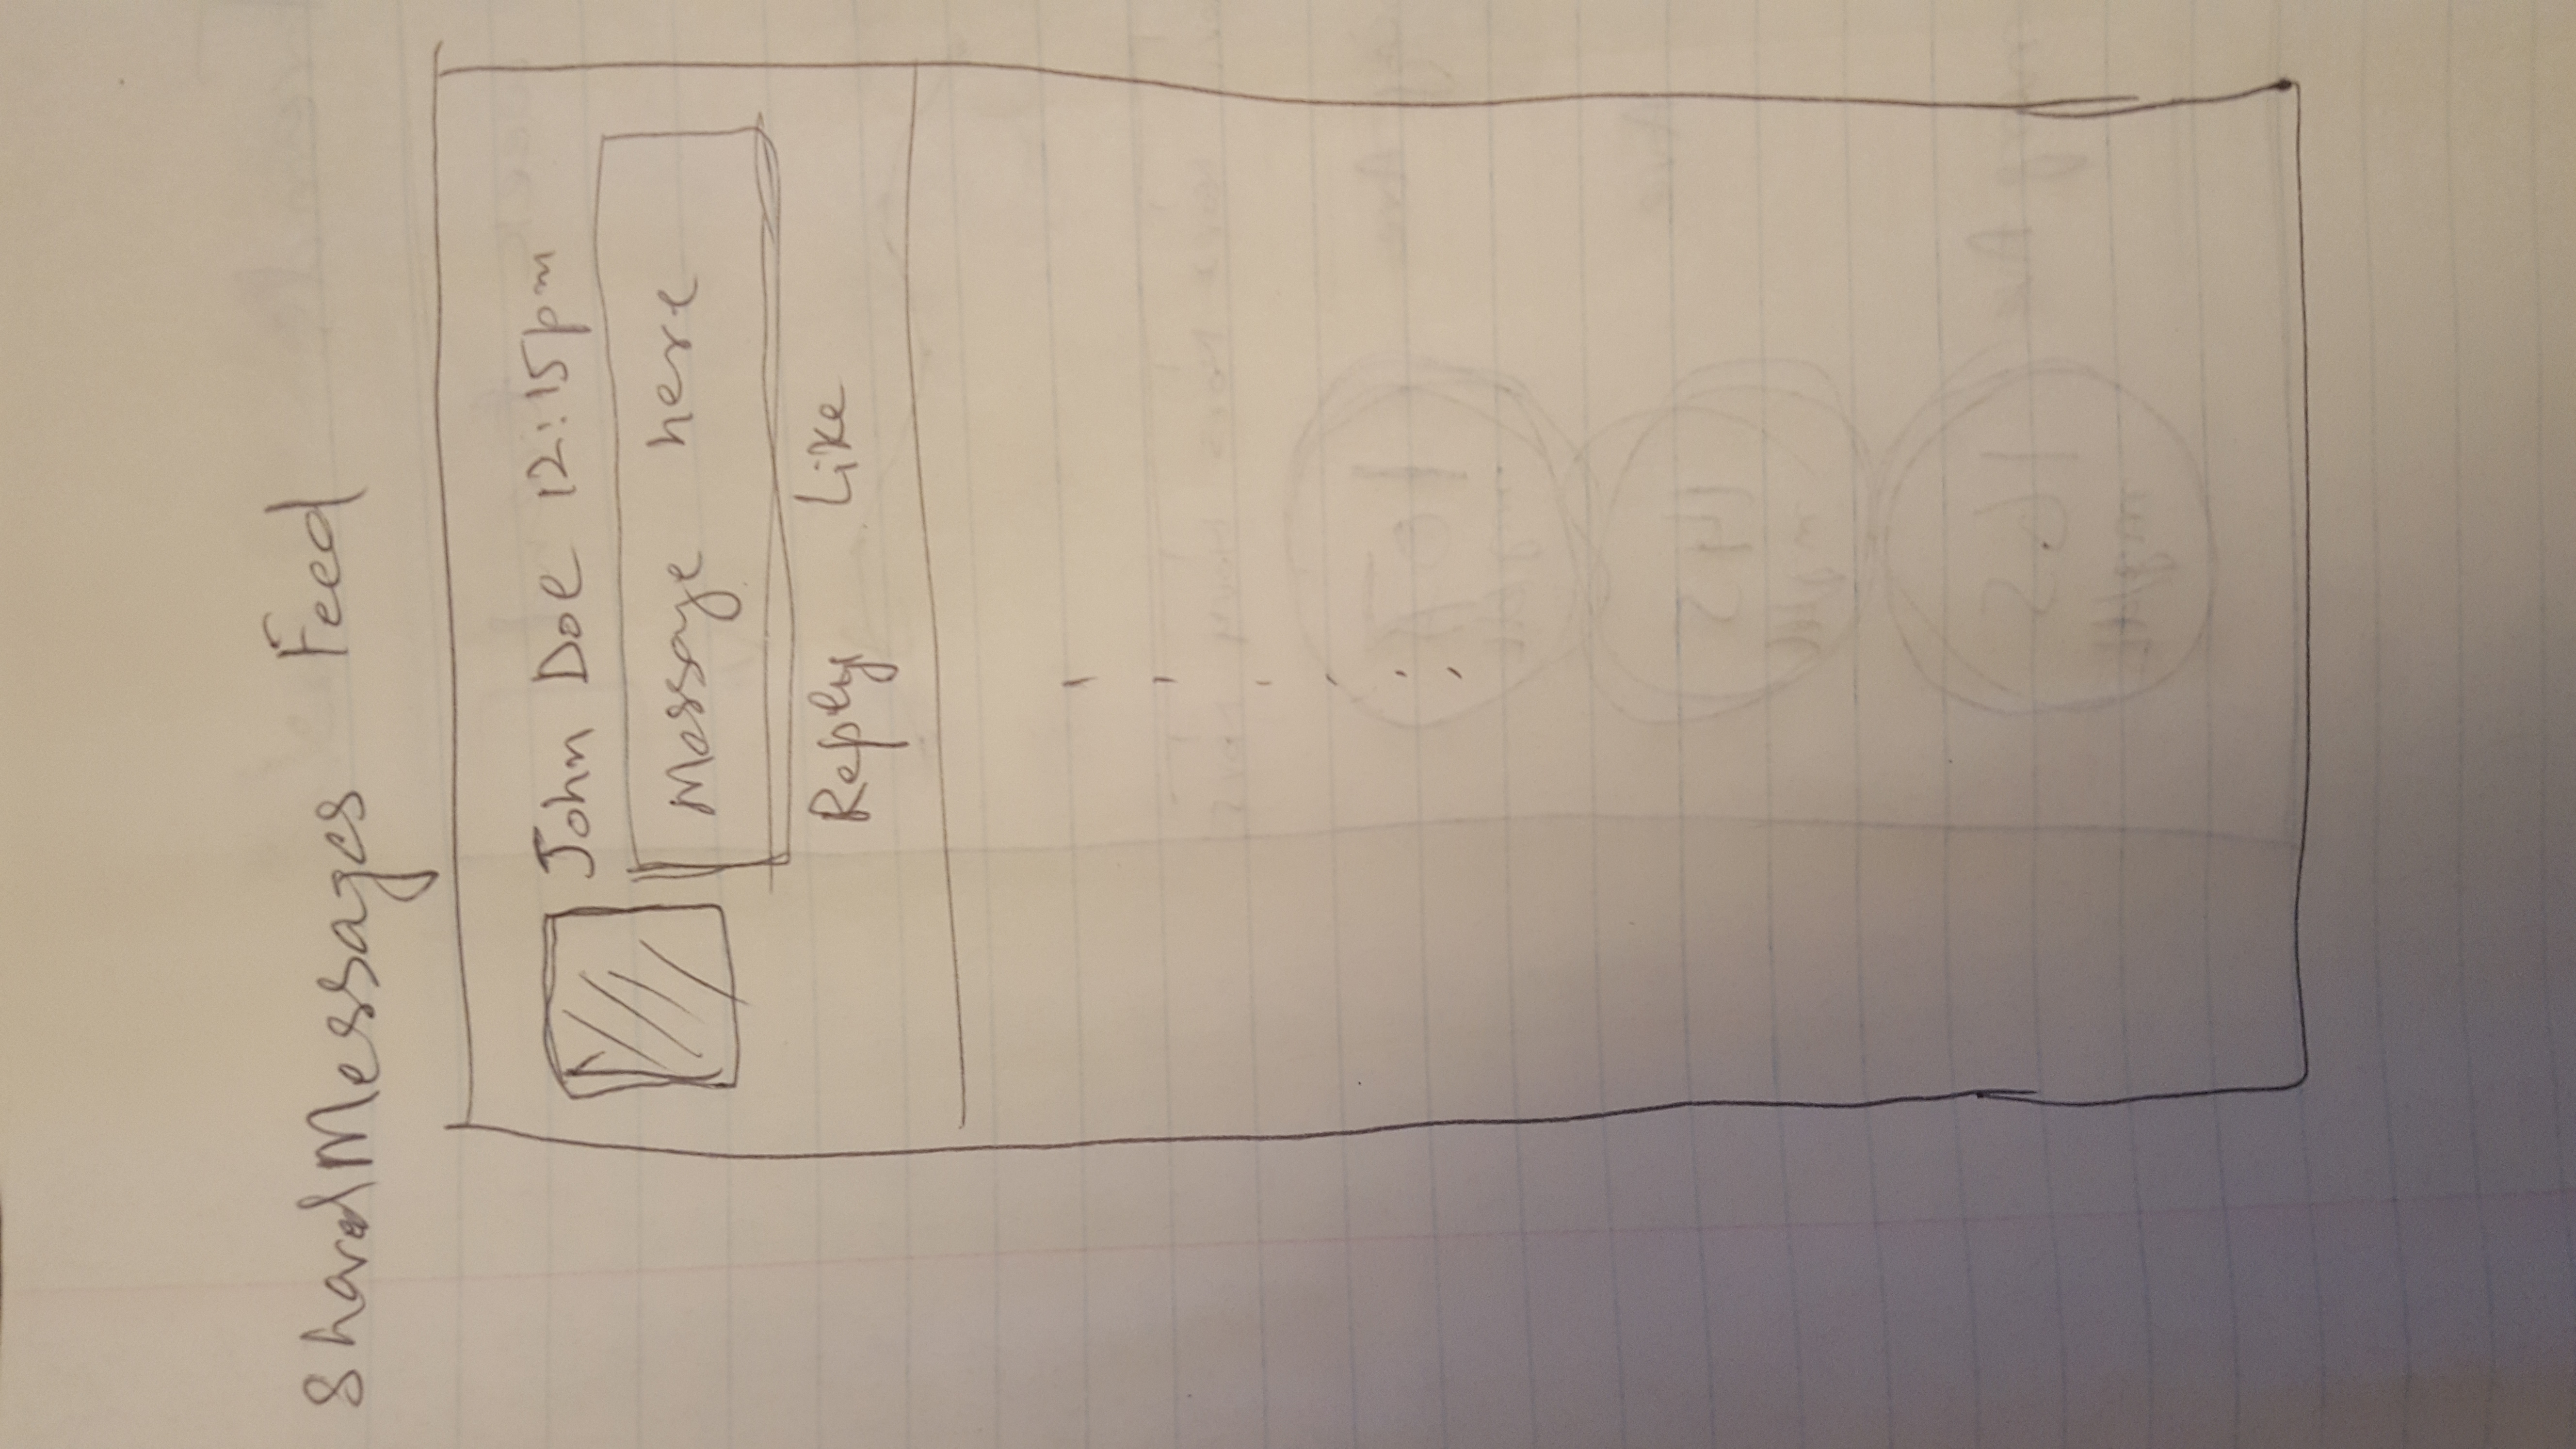 Shared Messages Feed
John Doe 12:15pm
Message here
Reply Like